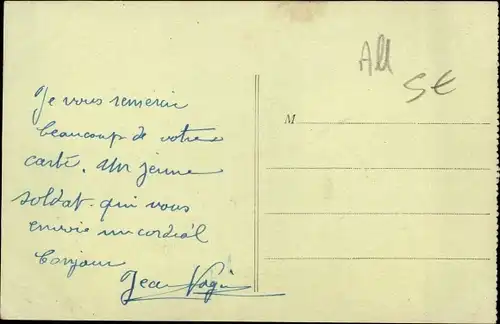 All
5€
M
Je vous remercie
beaucoup de votre
carte. Un jeune
soldat. qui vous
envoie un cordial
bonjour
Jean